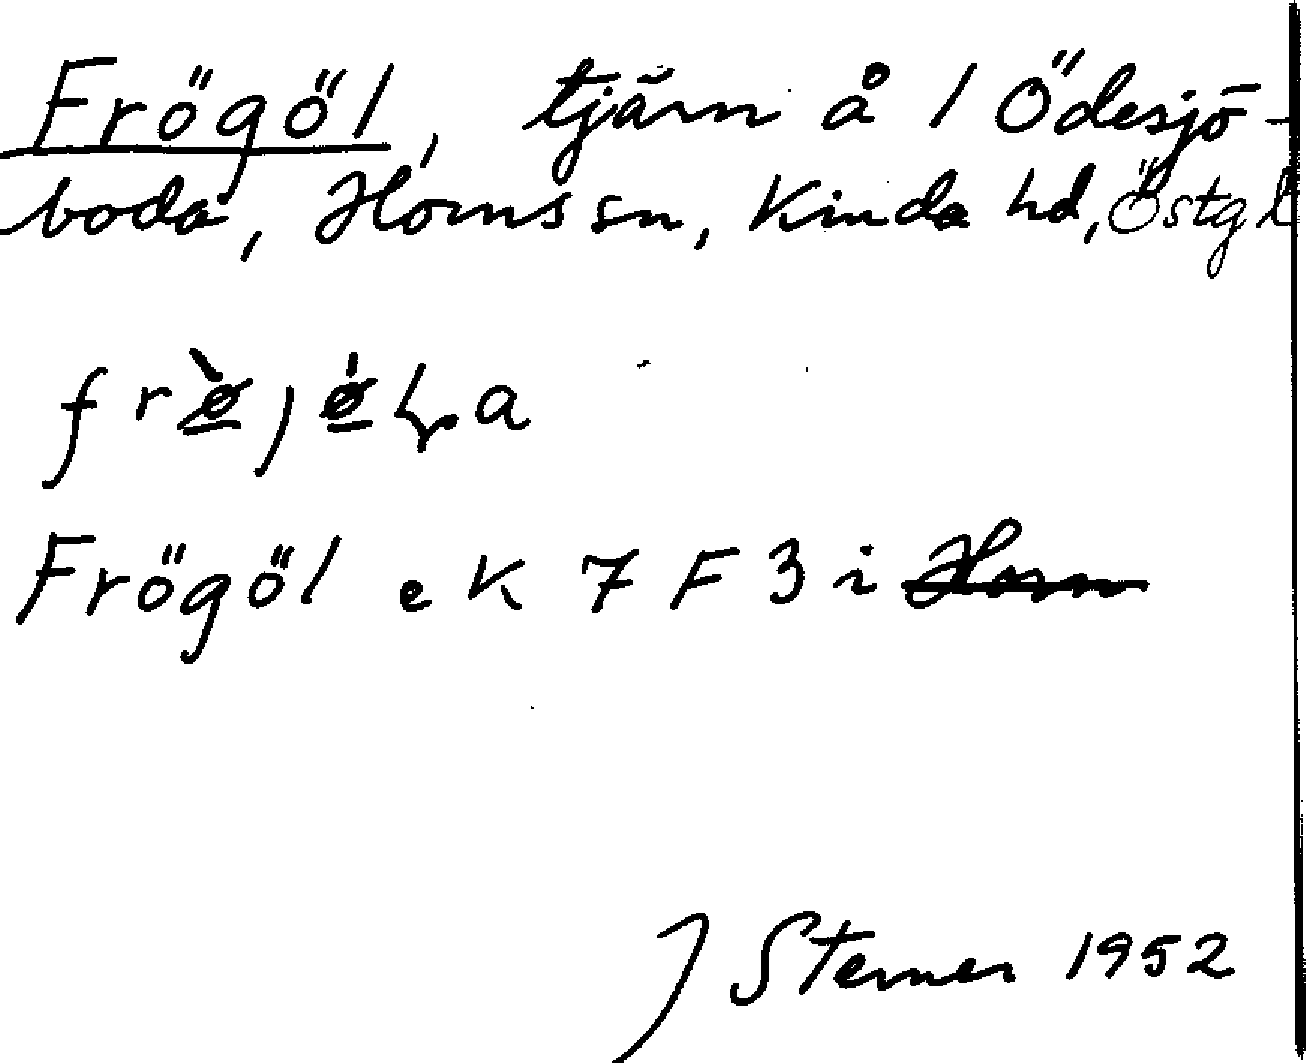 Frögöl, tjärn å 1 Ödesjö-
boda, Horns sn, Kinda hd, Östgl
Frögöl ek 7 F 3 i Horn
J Sterner 1952